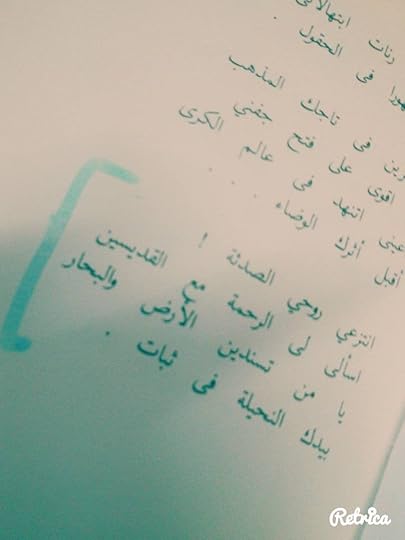 رنات ابتهالاتي
في الحقول .
في تاجك المذهب
اقوى على فتح جفني
اتنهد في عالم الكرى
أثرك الوضاء . . .
أقبل
انتزعي روحي الصدئة !
اسألي لي الرحمة مع القديسين
يا من تسندين الأرض والبحار
بيدك النحيلة في ثبات .
Retrica